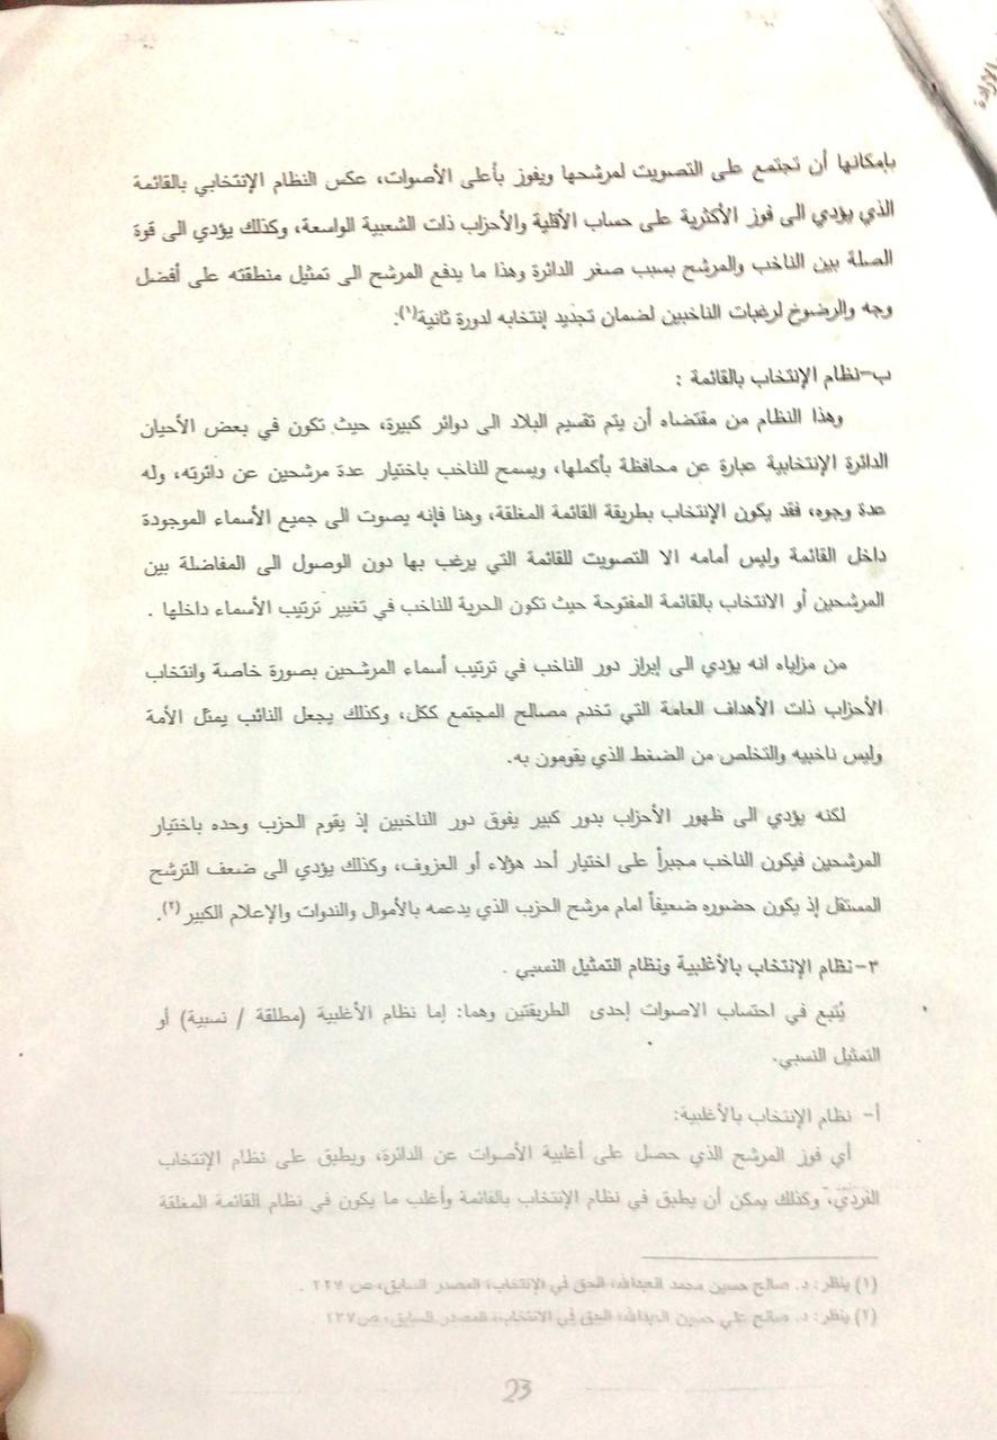 بإمكانها أن تجتمع على التصويت لمرشحها ويفوز بأعلى الأصوات، عكس النظام الإنتخابي بالقائمة
الذي يؤدي الى فوز الأكثرية على حساب الأقلية والأحزاب ذات الشعبية الواسعة، وكذلك يؤدي الى قوة
الصلة بين الناخب والمرشح بسبب صغر الدائرة وهذا ما يدفع المرشح الى تمثيل منطقته على أفضل
وجه والرضوخ لرغبات الناخبين لضمان تجديد إنتخابه لدورة ثانية(١).
ب-نظام الإنتخاب بالقائمة :
وهذا النظام من مقتضاه أن يتم تقسيم البلاد الى دوائر كبيرة، حيث تكون في بعض الأحيان
الدائرة الإنتخابية عبارة عن محافظة بأكملها، ويسمح للناخب باختيار عدة مرشحين عن دائرته، وله
عدة وجوه، فقد يكون الإنتخاب بطريقة القائمة المغلقة، وهنا فإنه يصوت الى جميع الأسماء الموجودة
داخل القائمة وليس أمامه الا التصويت للقائمة التي يرغب بها دون الوصول الى المفاضلة بين
المرشحين أو الانتخاب بالقائمة المفتوحة حيث تكون الحرية للناخب في تغيير ترتيب الأسماء داخلها .
من مزاياه انه يؤدي الى إبراز دور الناخب في ترتيب أسماء المرشحين بصورة خاصة وانتخاب
الأحزاب ذات الأهداف العامة التي تخدم مصالح المجتمع ككل، وكذلك يجعل النائب يمثل الأمة
وليس ناخبيه والتخلص من الضغط الذي يقومون به.
لكنه يؤدي الى ظهور الأحزاب بدور كبير يفوق دور الناخبين إذ يقوم الحزب وحده باختيار
المرشحين فيكون الناخب مجبراً على اختيار أحد هؤلاء أو العزوف، وكذلك يؤدي الى ضعف الترشح
المستقل إذ يكون حضوره ضعيفاً امام مرشح الحزب الذي يدعمه بالأموال والندوات والإعلام الكبير (٢).
٣-نظام الإنتخاب بالأغلبية ونظام التمثيل النسبي .
يُتبع في احتساب الاصوات إحدى الطريقتين وهما: إما نظام الأغلبية (مطلقة / نسبية) أو
التمثيل النسبي.
أ- نظام الإنتخاب بالأغلبية:
أي فوز المرشح الذي حصل على أغلبية الأصوات عن الدائرة، ويطبق على نظام الإنتخاب
الفردي، وكذلك يمكن أن يطبق في نظام الإنتخاب بالقائمة وأغلب ما يكون في نظام القائمة المغلقة
(١) ينظر: د. صالح حسين محمد العبدالله، الحق في الإنتخاب، المصدر السابق، ص ٢٢٧ .
(٢) ينظر: د. صالح علي حسين العبدالله، الحق في الانتخاب، المصدر السابق، ص٢٣٧ .
23